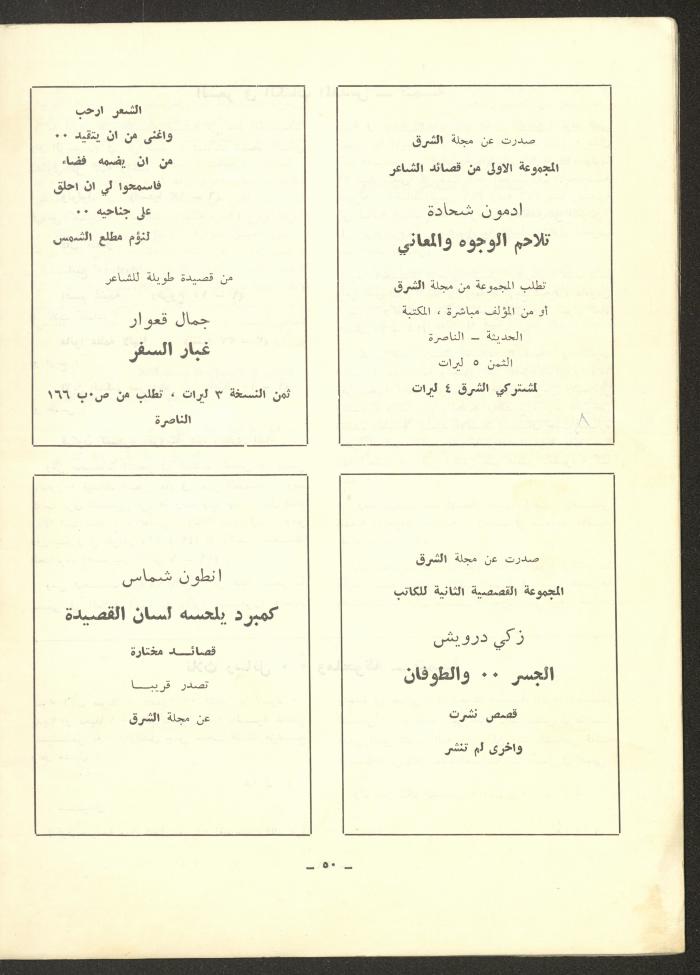 صدرت عن مجلة الشرق
المجموعة الاولى من قصائد الشاعر
ادمون شحادة
تلاحم الوجوه والمعاني
تطلب المجموعة من مجلة الشرق
أو من المؤلف مباشرة ، المكتبة
الحديثة – الناصرة
الثمن ٥ ليرات
لمشتركي الشرق ٤ ليرات
الشعر ارحب
واغنى من ان يتقيد ٠٠
من ان يضمه فضاء
فاسمحوا لي ان احلق
على جناحيه ٠٠
لنؤم مطلع الشمس
من قصيدة طويلة للشاعر
جمال قعوار
غبار السفر
ثمن النسخة ٣ ليرات ، تطلب من ص٠ب ١٦٦
الناصرة
صدرت عن مجلة الشرق
المجموعة القصصية الثانية للكاتب
زكي درويش
الجسر ٠٠ والطوفان
قصص نشرت
واخرى لم تنشر
انطون شماس
كمبرد يلحسه لسان القصيدة
قصائــد مختارة
تصدر قريبــا
عن مجلة الشرق
– ٥٠ –